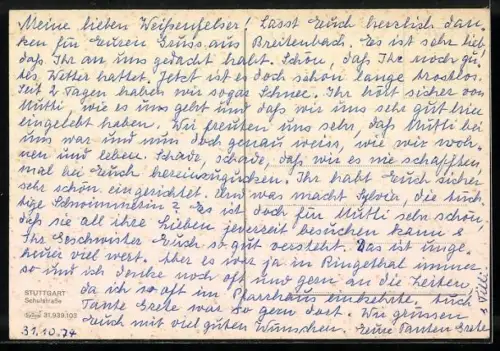 Meine lieben Weißenfelser! Lasst Euch herzlich dan-
ken für Euren Gruss aus Breitenbach. Es ist sehr lieb
daß Ihr an uns gedacht habt. Schön, daß Ihr noch gu-
tes Wetter hattet. Jetzt ist es doch schon lange trostlos.
Seit 2 Tagen haben wir sogar Schnee. Ihr hört sicher von
Mutti, wie es uns geht und daß wir uns sehr gut hier
eingelebt haben. Wir freuten uns sehr, daß Mutti bei
uns war und nun doch genau weiss, wie wir woh-
nen und leben. Schade, schade, daß wir es nie schafften,
mal bei Euch hereinzugucken. Ihr habt Euch sicher
sehr schön eingerichtet. Und was macht Sylvia, die tüch-
tige Schwimmerin? Es ist doch für Mutti sehr schön,
daß sie all ihre Lieben jederzeit besuchen kann &
Ihr Geschwister Euch so gut versteht. Das ist unge-
heuer viel wert. Aber es war ja in Ringethal immer
so und ich denke noch oft und gern an die Zeiten,
da ich so oft im Pfarrhaus einkehrte. Auch
Tante Grete war so gern dort. Wir grüssen
Euch mit viel guten Wünschen. Eure Tanten Grete
& Tilli
STUTTGART
Schulstraße
31.939.103
31.10.74